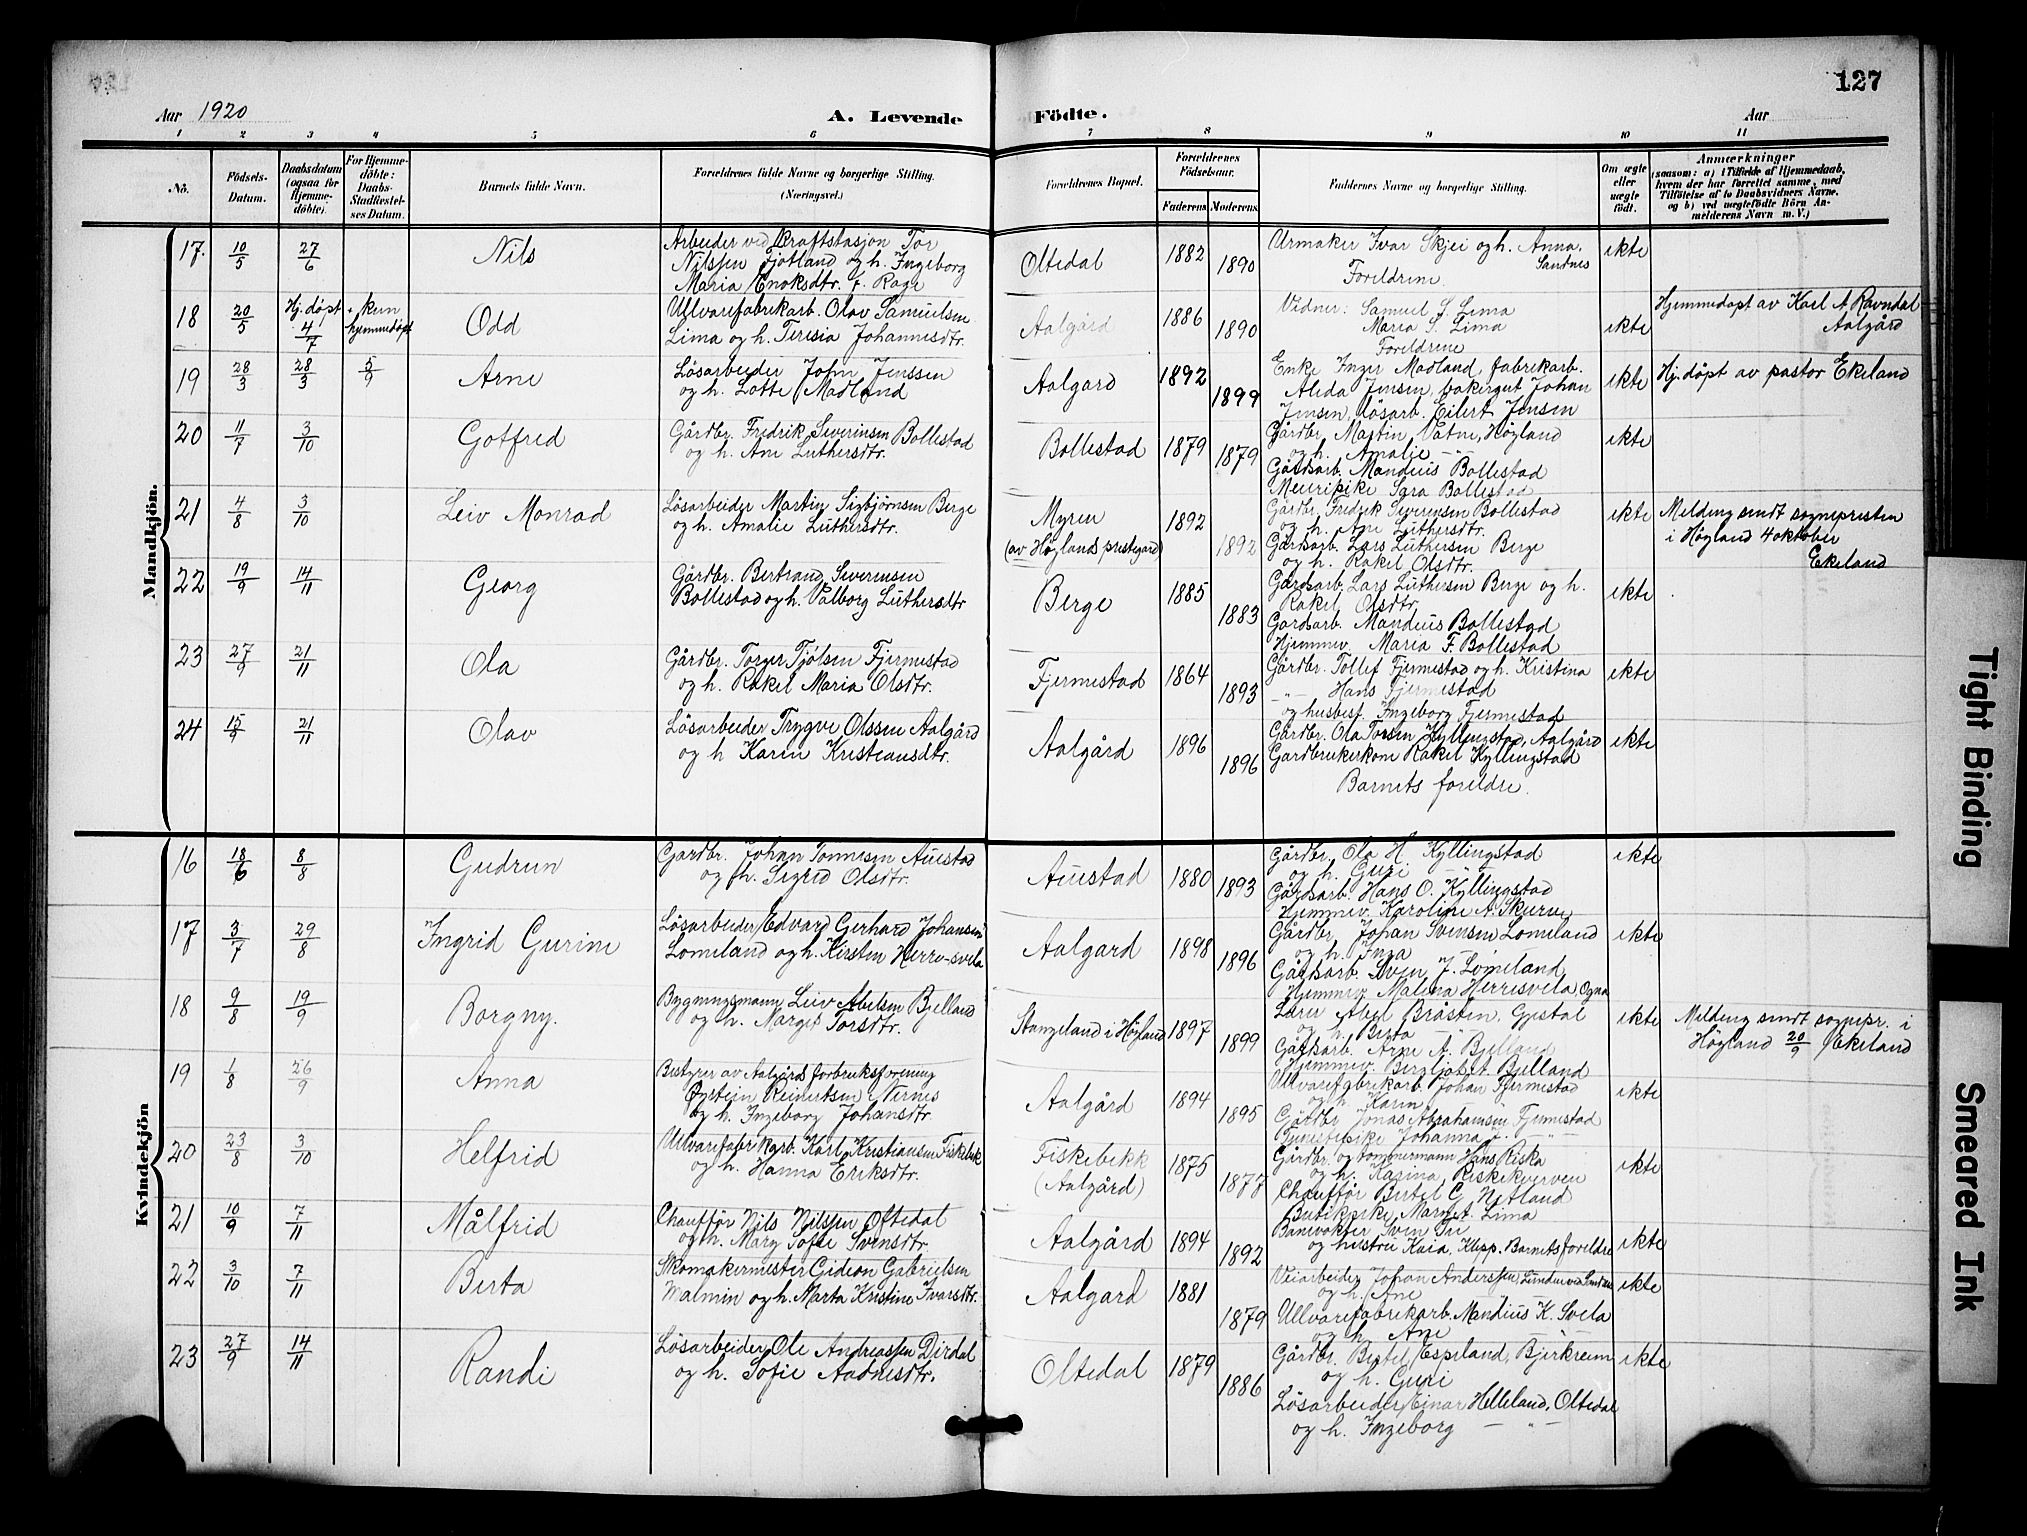 127
Aar 1920
A. Levende
Födte.
Aar
1 2 3 4 5 6 7 8 9 10 11
No.
Födsels-
Datum.
Daabsdatum
(ogsaa for
Hjemme-
döbte).
For Hjemme-
döbte:
Daabs-
Stadfæstel-
ses Datum.
Barnets fulde Navn.
Forældrenes fulde Navne og borgerlige Stilling.
(Næringsvei.)
Forældrenes Bopæl.
Forældrenes
Födselsaar.
Faderens
Moderens
Faddernes Navne og borgerlige Stilling.
Om ægte
eller
uægte
födt.
Anmærkninger
(saasom: a) i Tilfælde af Hjemmedaab,
hvem der har forrettet samme, med
Tilföielse af to Daabsvidners Navne,
og b) ved uægtefödte Börn An-
melderens Navn m. V.)
Mandkjön.
17. 10/5 27/6
Nils
Arbeider ved Kraftstasjon Tor
Nilssen Fjotland og h. Ingeborg
Maria Enoksdtr. f. Rage
Oltedal
1882
1890
Urmaker Ivar Skjei og h. Anna,
Sandnes
Foreldrene
ekte
18 20/5
Hj. døpt
4/7
kun
hjemmedøpt
Odd
Ullvarefabrikarb. Olav Samuelsen
Lima og h. Teresia Johannesdtr.
Aalgård
1886
1890
Vidner: Samuel S. Lima
Maria S. Lima
Foreldrene
ekte
Hjemmedøpt av Karl A. Ravndal
Aalgård
19 28/3 28/3 5/9
Arne
Løsarbeider John Jenssen
og h. Lotte Madland
Aalgard
1892
1899
Enke Inger Madland, fabrikarb.
Aleda Jensen, bakergut Johan
Jensen, løsarb. Eilert Jensen
ekte
Hj. døpt av pastor Ekeland
20 11/7 3/10
Gotfred
Gårdbr. Fredrik Severinsen Bollestad
og h. Ane Luthersdtr.
Bollestad
1879
1879
Gårdbr. Martin Vatne, Høgland
og h. Amalie
Gårdsarb. Mandius Bollestad
Meieripike Sara Bollestad
ekte
21 4/8 3/10
Leiv Monrad
Løsarbeider Martin Sigbjørnsen Berge
og h. Amalie Luthersdtr.
Myren
(av Høglands prestegard)
1892
1892
Gårdbr. Fredrik Severinsen Bollestad
og h. Ane Luthersdtr.
Gårdsarb. Lars Luthersen Berge
og h. Rakel Olsdtr.
ekte
Melding sendt sognepresten
i Høgland 4 oktober
Ekeland
22 19/9 14/11
Georg
Gårdbr. Bertrand Severinsen
Bollestad og h. Valborg Luthersdtr
Berge
1885
1883
Gårdsarb. Lars Luthersen Berge og h.
Rakel Olsdtr.
Gardsarb. Mandius Bollestad
Hjemmev. Maria F. Bollestad
ekte
23 27/9 21/11
Ola
Gårdbr. Torger Tjølsen Fjermestad
og h. Rakel Maria Olsdtr.
Fjermestad
1864
1893
Gårdbr. Tollef Fjermestad og h. Kristina
Hans Fjermestad
og husbest. Ingeborg Fjermestad
ekte
24 15/9 21/11
Olav
Løsarbeider Trygve Olssen Aalgård
og h Karen Kristiansdtr.
Aalgård
1896
1896
Gårdbr. Ola Torsen Kyllingstad, Aalgård
Gardbrukerkone Rakel Kyllingstad
Barnets foreldre.
ekte
Kvindekjön
16 18/6 8/8
Gudrun
Gardbr. Johan Tonnesen Auestad
og h. Sigrid Olsdtr.
Auestad
1880
1893
Gårdbr. Ola H. Kyllingstad
og h. Guri
Gårdsarb. Hans O. Kyllingstad
Hjemmev. Karoline A. Skurve
ekte
17 3/7 29/8
Ingrid Gurine
Løsarbeider Edvard Gerhard Johansen
Lomeland og h. Kirsten Herre-svela
Aalgard
1898
1896
Gårdbr. Johan Svensen Lomeland
og h. Inga
Gårdsarb. Sven J. Lomeland
Hjemmev. Malena Herresvela Ogna
ekte
18 9/8 19/9
Borgny.
Bygningsmann Leiv Abelsen Bjelland
og h. Margit Torsdtr.
Stangeland i Høyland
1897
1899
Lærer Abel Bråstein, Gjestal
og h. Berta
Gårdsarb. Arne A. Bjelland
Hjemmev. Bergljot A. Bjelland
ekte
Melding sendt sognepr. i
Høgland 20/9 Ekeland
19 1/8 26/9
Anna
Bestyrer av Aalgårds forbruksforening
Øystein Reinertsen Nernes
og h. Ingeborg Johansdtr.
Aalgård
1894
1895
Ullvarefabrikarb. Johan Fjermestad
og h. Karin
Gårdbr. Jonas Abrahamsen Fjermestad
Tjenestepike Johanna J.
ekte
20 23/8 3/10
Helfrid
Ullvarefabrikarb. Karl Kristiansen Fiskebek
og h. Hanna Eriksdtr.
Fiskebekk
(Aalgård)
1875
1877
Gårdbr. og tømmermann Hans Riska
og h. Karina, Riskekverven
Chauffør Bertel G. Netland
Butikpike Margit Lima
ekte
21 10/9 7/11
Målfrid
Chauffør Nils Nilssen Oftedal
og h. Mary Sofie Svensdtr.
Aalgård
1894
1892
Banevokter Sven Tu
og hustru Kaia, Klepp. Barnets foreldre
ekte
22 3/10 7/11
Berta
Skomakermester Gideon Gabrielsen
Malmin og h. Marta Kristine Ivarsdtr.
Aalgard
1881
1879
Veiarbeider Johan Anderssen
og h. Ane
Ullvarefabrikarb. Mandius K. Svela
og h. Ane
ekte
23 27/9 14/11
Randi
Løsarbeider Ole Andreassen Dirdal
og h. Sofie Aadnesdtr.
Oltedal
1879
1886
Gårdbr. Bertel Espeland, Bjerkreim
og h. Guri
Løsarbeider Einar Helleland, Oltedal
og h. Ingeborg
ekte
Tight Binding
Smeared Ink